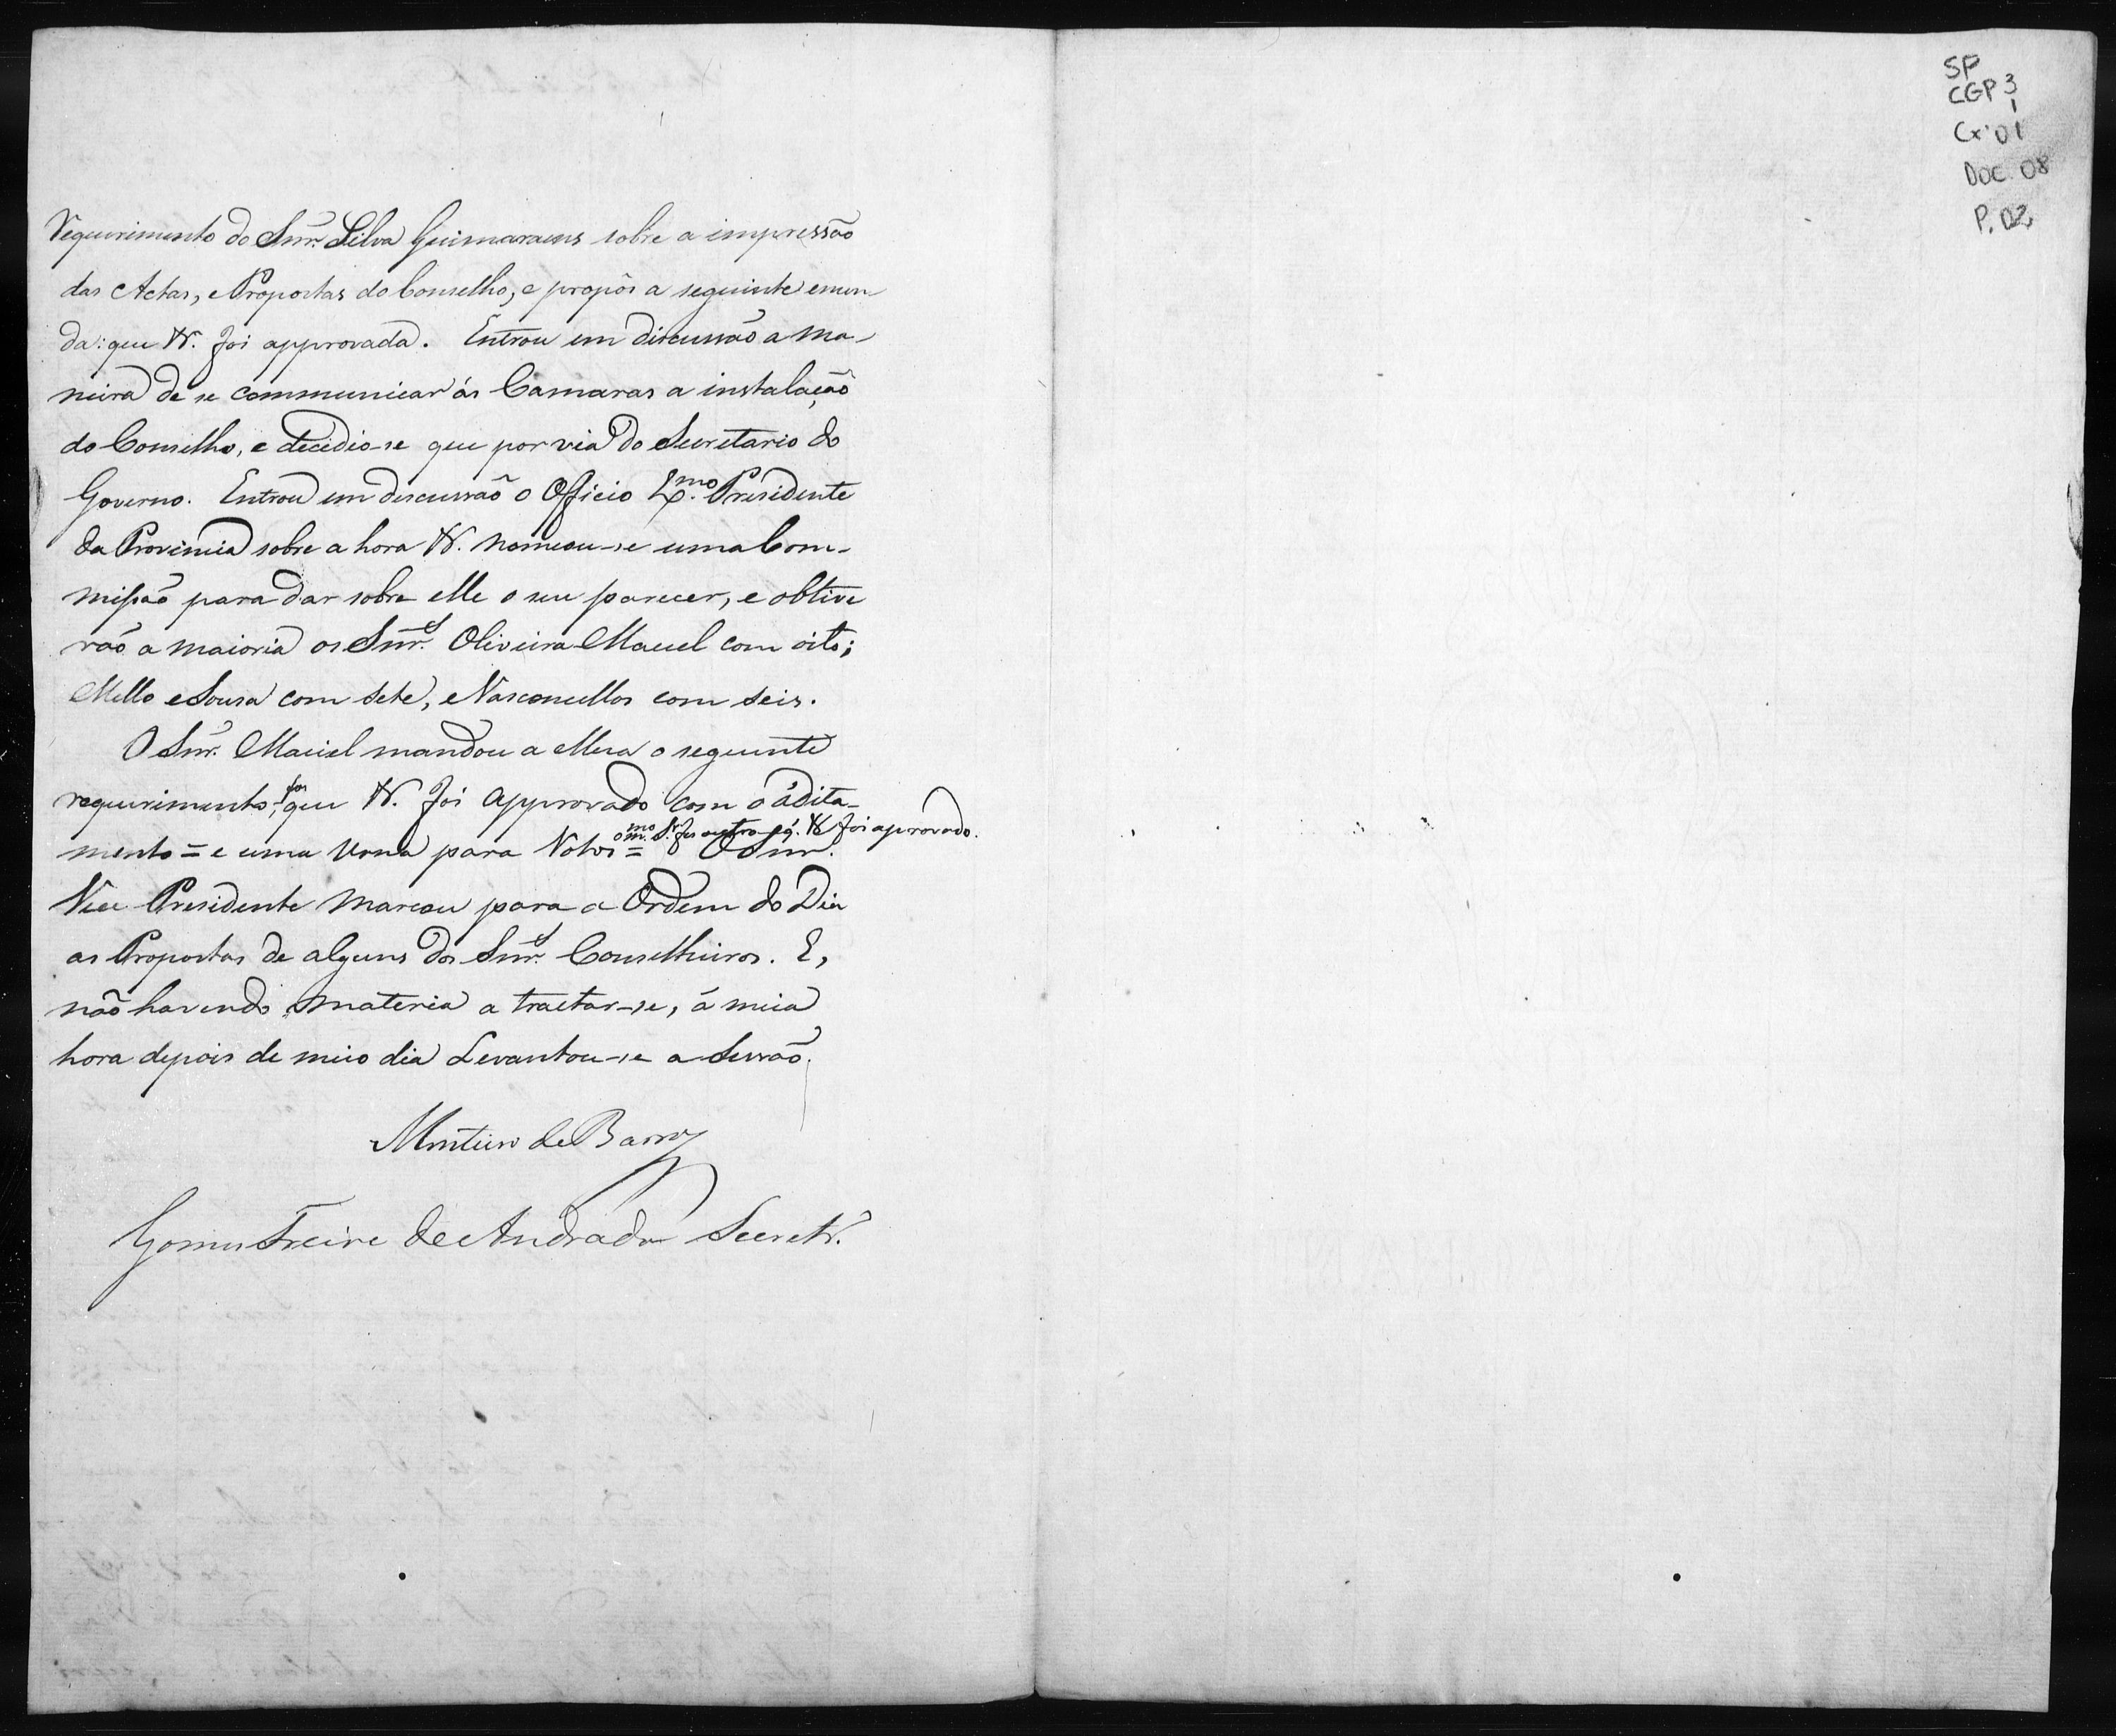 Requerimento do Snr. Silva Guimaraens sobre a impressão
das Actas, e Propostas do Conselho, e propôs a seguinte emen
da: que N. foi approvada. Entrou em discussão a ma-
neira de se communicar ás Camaras a instalação
do Conselho, e decedio-se que por via do Secretario do
Governo. Entrou em discussão o Officio Exmo. Presidente
da Provincia sobre a hora N. nomeou-se uma Com-
missão para dar sobre elle o seu parecer, e obtive
rão a maioria os Snrs. Oliveira Maciel com oito;
Mello e Sousa com sete, e Vasconcellos com seis.
O Snr. Maciel mandou a Mesa o seguinte
requerimento, que N. foi approvado com o ádita-
omo. Sr. fes outro N foi aprovado.
mento = e uma Urna para Votos = O Snr.
Vice Presidente marcou para a Ordem do Dia
as Propostas de alguns dos Snrs. Conselheiros. E,
não havendo materia a tractar-se, á meia
hora depois de meio dia Levantou-se a Sessão.
Monteiro de Barros
Gomes Freire de Andrade Secretr.
SP
CGP 3
1
Cx. 01
DOC. 08
P. 02